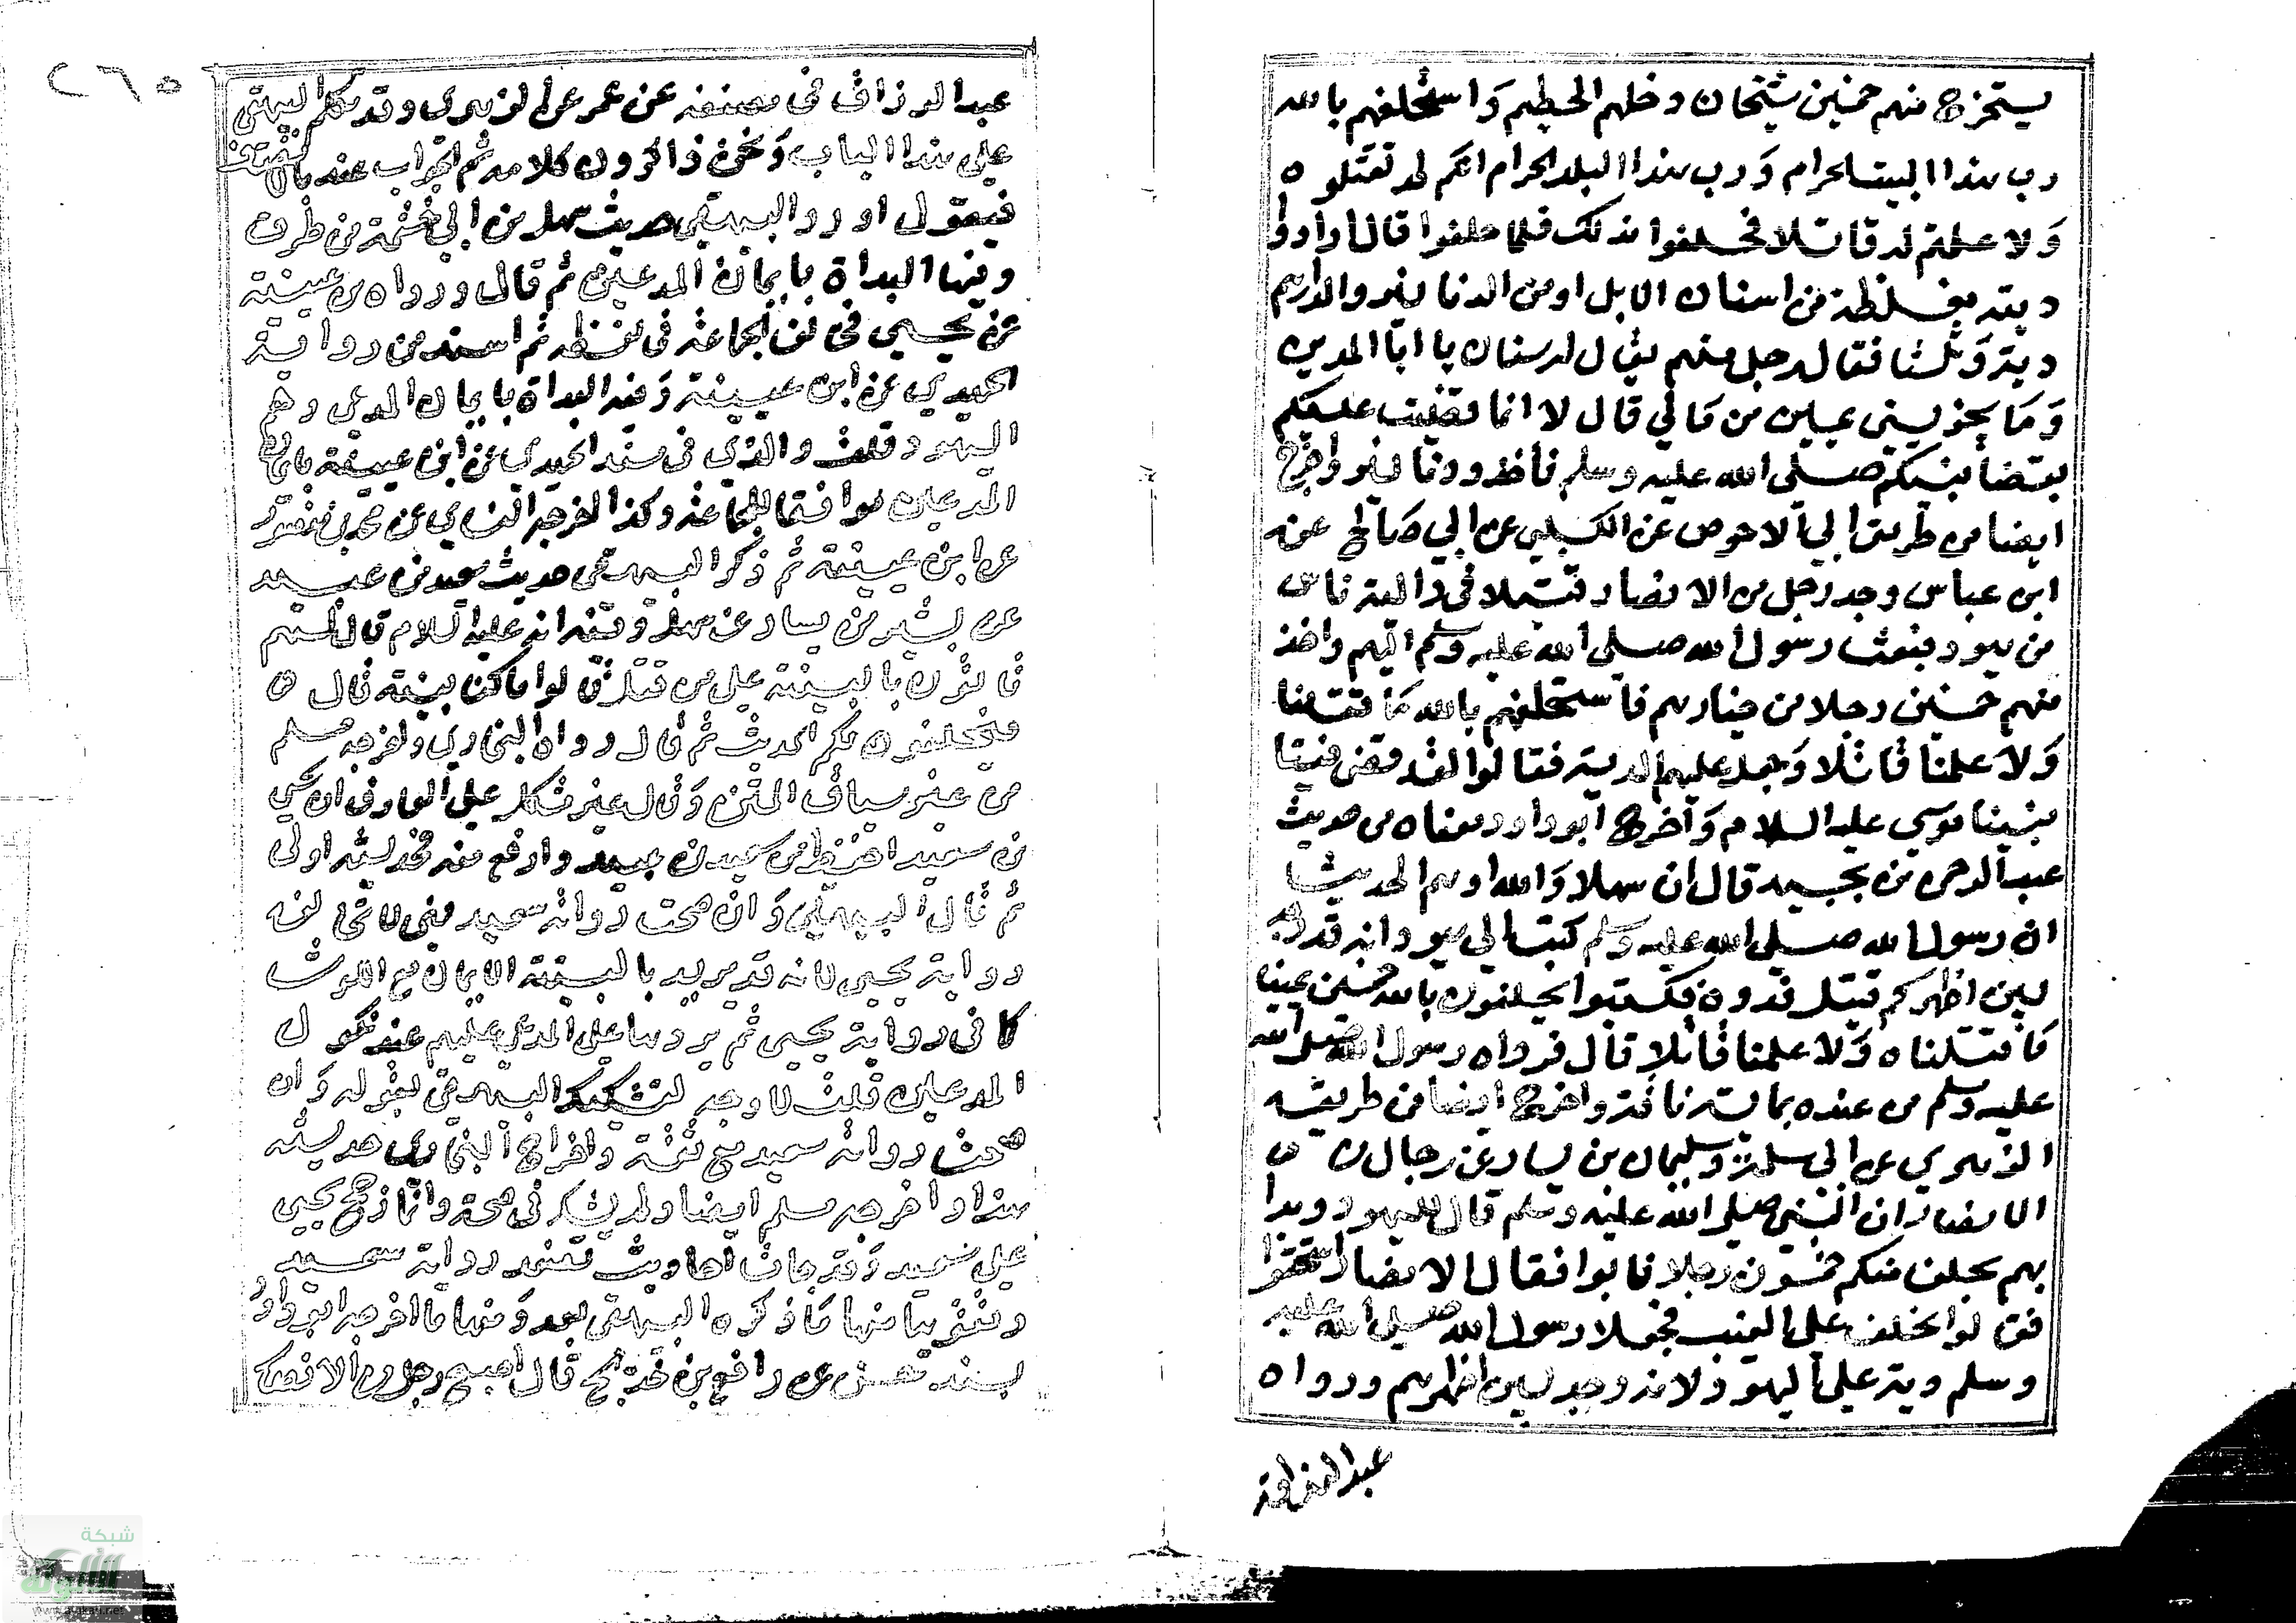 يستخرج منهم خمسين شيخان دخلهم الحطيم وَاستحلفهم بالله
رب هذا البيت الحرام وَرب هذا البلد الحرام انكم لم تقتلوه
وَلا علمتم له قاتلا فحلفوا بذلك فلما حلفوا قال ادوا
ديته مغلظة من اسنان الابل او من الدنانير والدراهم
دية وَثلثا فقال رجل منهم يقال له سنان يا امير المومنين
وَمَا يجزيني يميني من مَالي قال لا انما قضيت عليكم
بقضا نبيكم صلى الله عليه وسلم فاخذ ودنانير واخرج
ايضا من طريق ابي الاحوص عن الكلبي عن ابي صَالح عن
ابن عباس وجد رجل من الانصار قتيلا في دالية ناس
من يهود فبعث رسول الله صلى الله عليه وسلم اليهم واخذ
منهم خمسين رجلا من خيارهم فاستحلفهم بالله مَا قتلنا
وَلا علمنا قاتلا وَجعل عليهم الدية فقالوا لقد قضى فينا
نبينا موسي عليه السلام وَاخرج ابو داود معناه من حديث
عبد الرحمن بن بجيد قال ان سهلا وَالله اوهم الحديث
ان رسول الله صلى الله عليه وسلم كتب الي يهود انه قد وجد
بين اظهركم قتيل فدوه فكتبوا يحلفون بالله خمسين يمينا
مَا قتلناه وَلا علمنا قاتلا قال فوداه رسول الله صلى الله
عليه وسلم من عنده بماية ناقة واخرج ايضا من طريق
الزهري عن ابي سلمة وسليمان بن يسار عن رجال من
الانصار ان النبي صلى الله عليه وسلم قال لليهود وبدا
بهم يحلف منكم خمسون رجلا فابوا فقال للانصار استحقوا
فقالوا نحلف على الغيب فجعلها رسول الله صلى الله عليه
وسلم دية على اليهود لانه وجد بين اظهرهم ورواه
٢٦٥
عبد الرزاق في مصنفه عن معمر عن الزهري وقد تكلم البيهقي
على هذا الباب وَنحن ذاكرون كلامه ثم الجواب عنه
فيقول اورد البيهقي حديث سهل بن ابي حثمة من طرق
وفيها البداة بايمان المدعين ثم قال ورواه بن عيينة
عن يحيي فخالف الجماعة في لفظه ثم اسند من رواية
الحميدي عن ابن عيينة وَفيه البداة بايمان المدعى وهم
اليهود قلت والذي في مسند الحميدي عن ابن عيينة بايمان
المدعين موافقا للجماعة وكذا اخرجه النساي عن محمد بن منصور
عن ابن عيينة ثم ذكر البيهقي حديث سعيد بن عبيد
عن بشير بن يسار عن سهل وفيه انه عليه السلام قال لهم
تاتون بالبينة على من قتل قالوا ما لنا بينة قال
فيحلفون لكم الحديث ثم قال رواه البخاري واخرجه مسلم
من غير سياق المتن وَقال غير مشكل على العارف ان يحيي
بن سعيد احفظ من سعيد بن عبيد وارفع منه فحديثه اولى
ثم قال البيهقي وَان صحت رواية سعيد فهي لا تخالف
رواية يحيي لانه قد يريد بالبينة الايمان مع اللوث
كما في رواية يحيي ثم يردها على المدعى عليهم عند نكول
المدعين قلت لا وجه لتشكيك البيهقي بقوله وَان
صحت رواية سعيد مع ثقته واخراج البخاري حديثه
هذا واخرجه مسلم ايضا ولم يشك في صحته وانما رجح يحيي
على سعيد وَقد جات احاديث تعضد رواية سعيد
وتقويها منها مَا ذكره البيهقي بعد وَمنها ما اخرجه ابو داود
بسند حسن عن رافع بن خديج قال اصبح رجل من الانصار